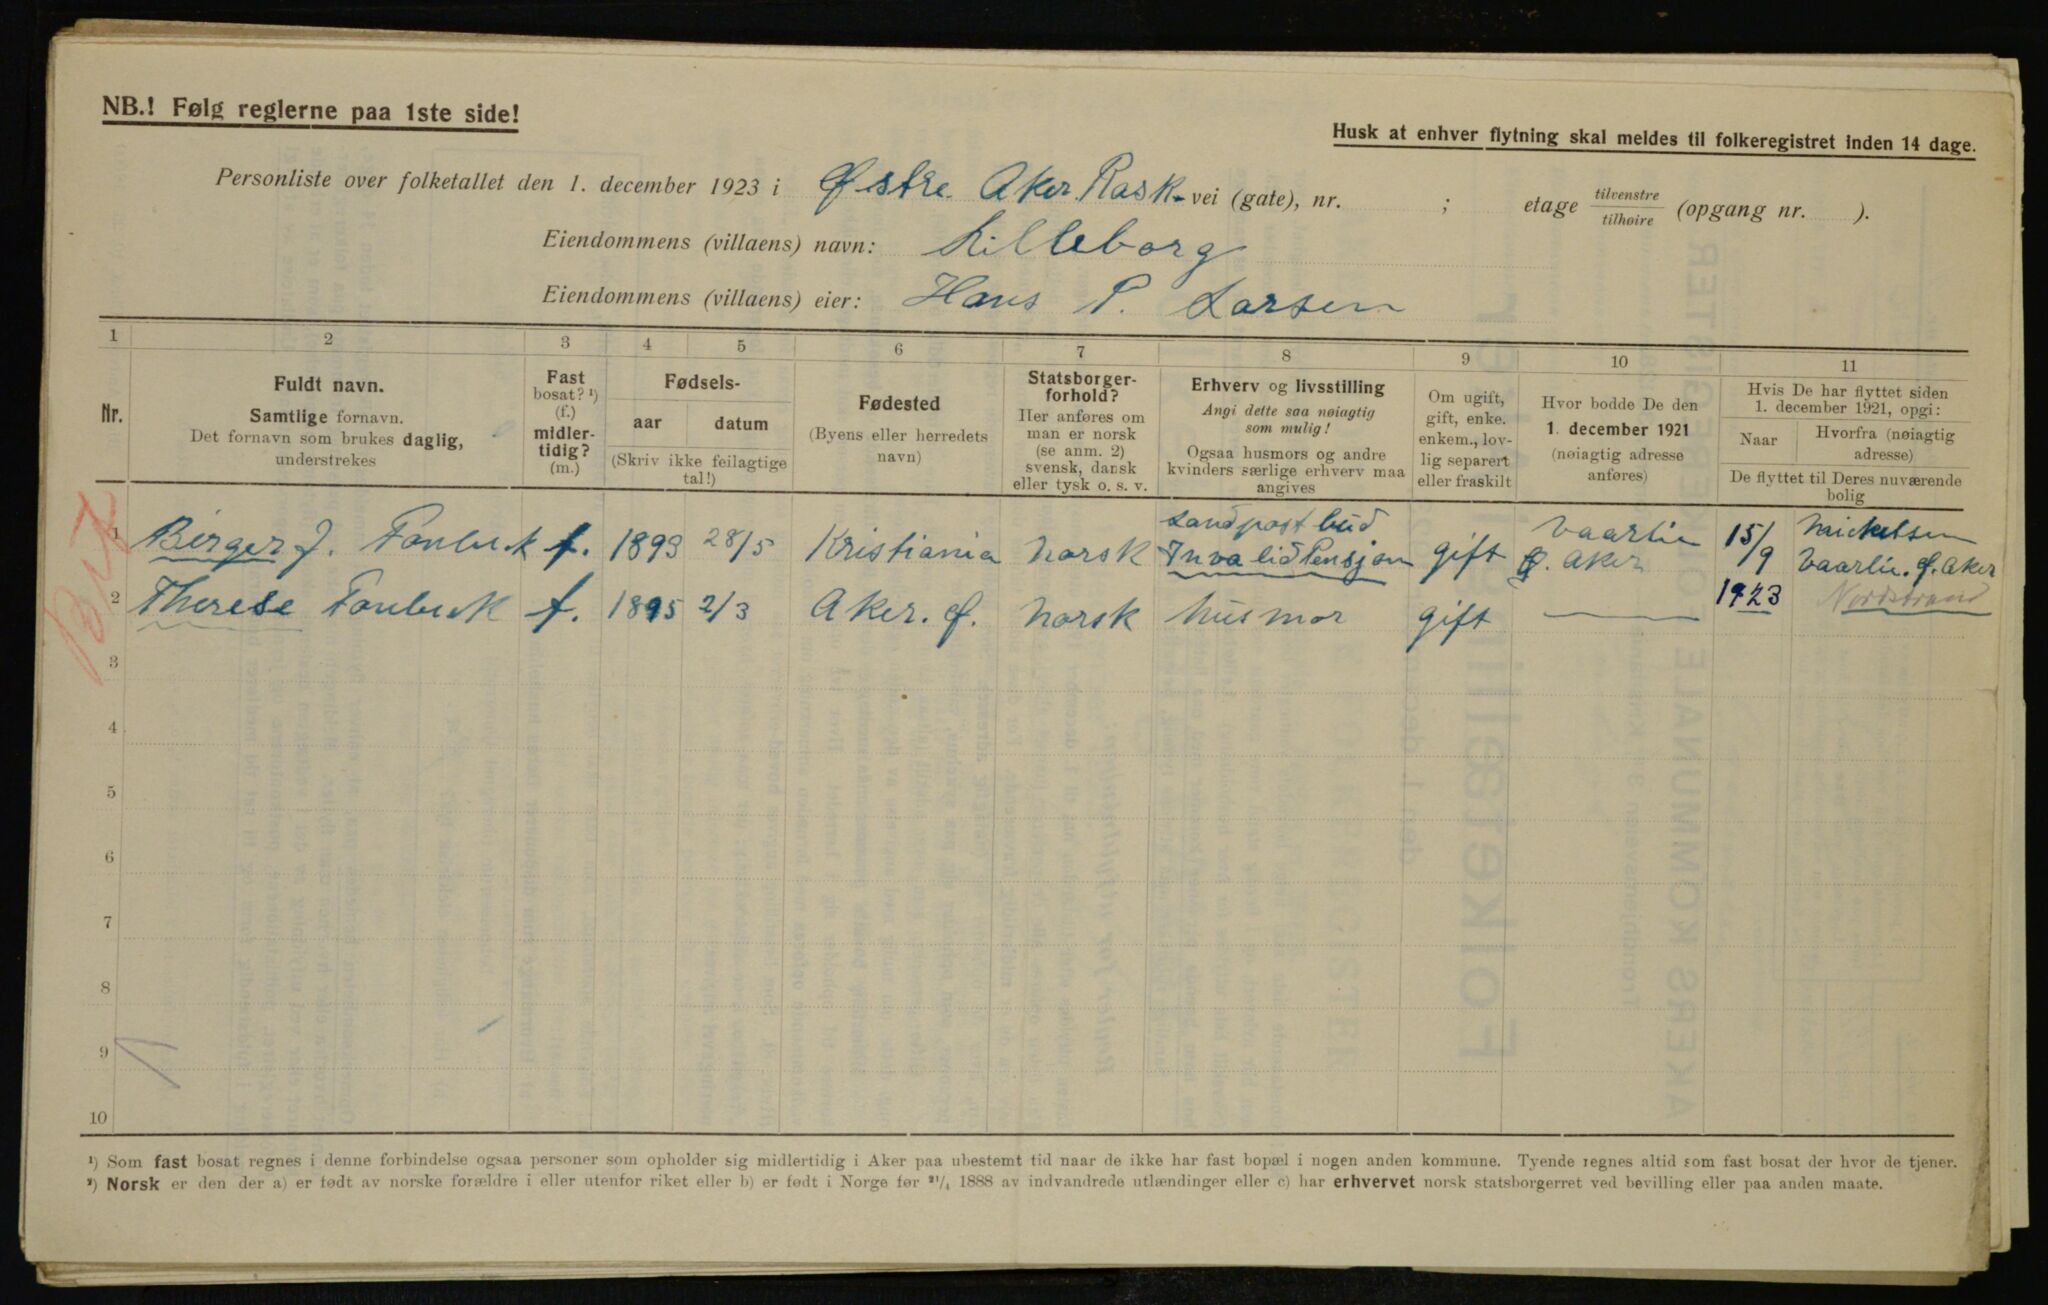 NB.! Følg reglerne paa 1ste side!
Husk at enhver flytning skal meldes til folkeregistret inden 14 dage.
Personliste over folketallet den 1. december 1923 i Østre Aker Rask- vei (gate), nr. ; etage tilvenstre / tilhøire (opgang nr. ).
Eiendommens (villaens) navn: Lilleborg
Eiendommens (villaens) eier: Hans P. Larsen
1 2 3 4 5 6 7 8 9 10 11
Nr.
Fuldt navn.
Samtlige fornavn.
Det fornavn som brukes daglig,
understrekes
Fast
bosat? ¹)
(f.)
midler-
tidig?
(m.)
Fødsels-
aar datum
(Skriv ikke feilagtige
tal!)
Fødested
(Byens eller herredets
navn)
Statsborger-
forhold?
Her anføres om
man er norsk
(se anm. 2)
svensk, dansk
eller tysk o. s. v.
Erhverv og livsstilling
Angi dette saa nøiagtig
som mulig!
Ogsaa husmors og andre
kvinders særlige erhverv maa
angives
Om ugift,
gift, enke.
enkem., lov-
lig separert
eller fraskilt
Hvor bodde De den
1. december 1921
(nøiagtig adresse
anføres)
Hvis De har flyttet siden
1. december 1921, opgi:
Naar
Hvorfra (nøiagtig
adresse)
De flyttet til Deres nuværende
bolig
Landpostbud Vaarlie 15/9 Mickelsen
1 Birger J. Fonbuk f. 1893 28/5 Kristiania Norsk Invalid Pensjon gift Ø. Aker Vaarlie. Ø. Aker
2 Therese Fonbuk f. 1895 2/3 Aker. Ø. Norsk husmor gift — 1923 Nordstrand
3
4
5
6
7
8
9
10
¹) Som fast bosat regnes i denne forbindelse ogsaa personer som opholder sig midlertidig i Aker paa ubestemt tid naar de ikke har fast bopæl i nogen anden kommune. Tyende regnes altid som fast bosat der hvor de tjener.
²) Norsk er den der a) er født av norske forældre i eller utenfor riket eller b) er født i Norge før 21/4 1888 av indvandrede utlændinger eller c) har erhvervet norsk statsborgerret ved bevilling eller paa anden maate.